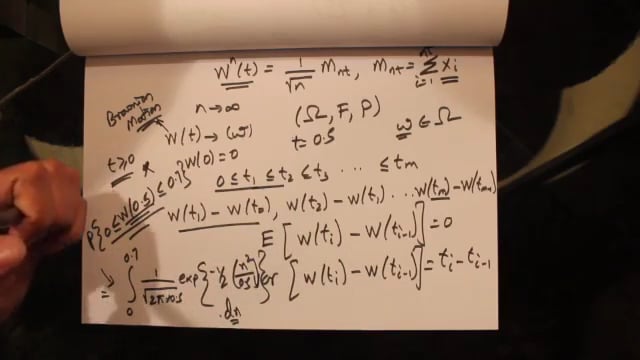 Wⁿ(t) = 1/√n Mₙₜ , Mₙₜ = Σᵢ₌₁ⁿᵗ Xᵢ
Brownian Motion
n → ∞
(Ω, F, P)
W(t) → (ω)
t = 0.5
ω ∈ Ω
t ≥ 0
W(0) = 0
0 ≤ t₁ ≤ t₂ ≤ t₃ ... ≤ tm
P{0 ≤ W(0.5) ≤ 0.7}
W(t₁) - W(t₀), W(t₂) - W(t₁) ... W(tm) - W(tm-1)
E [W(tᵢ) - W(tᵢ₋₁)] = 0
= ∫₀^0.7 1/√(2π×0.5) exp{-1/2 (x²/0.5)} . dx
[W(tᵢ) - W(tᵢ₋₁)] = tᵢ - tᵢ₋₁